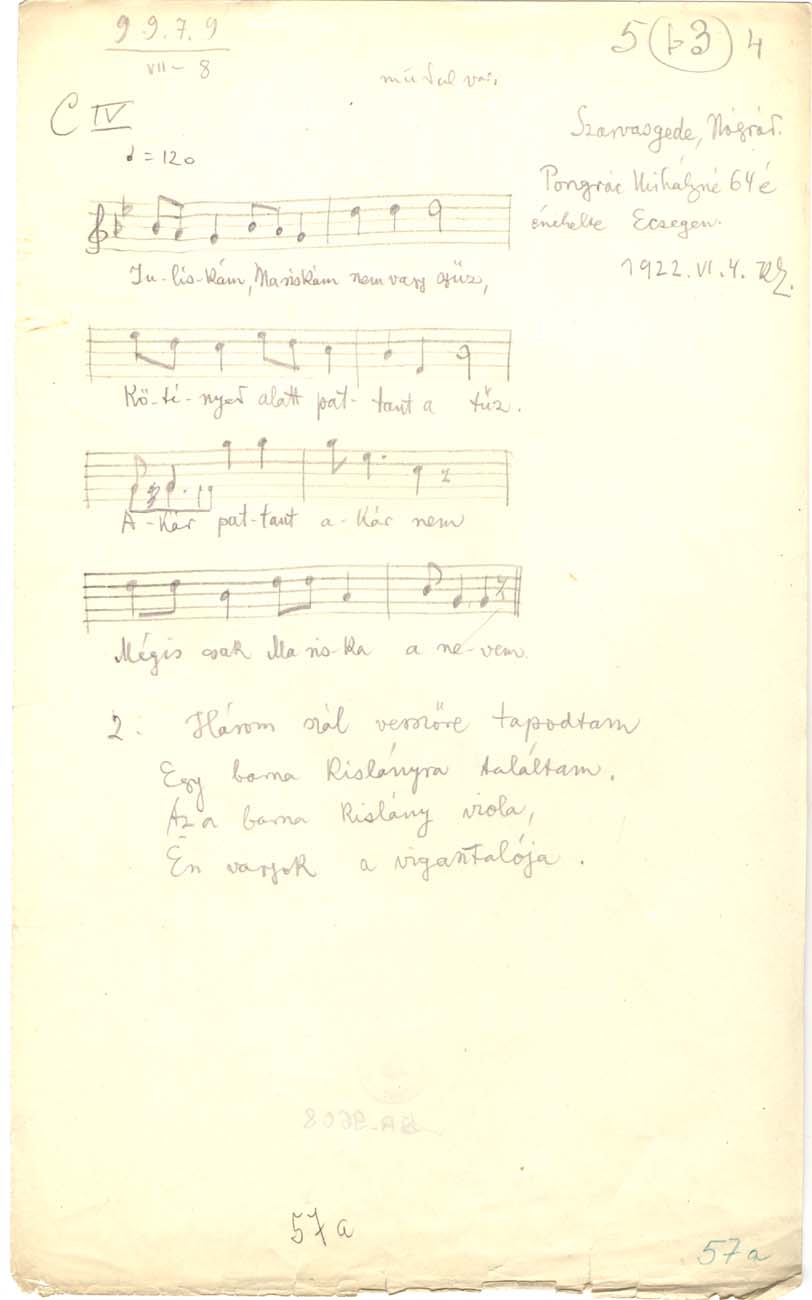 9 9. 7. 9
VII – 8
5 (b3) 4
műdal var.
C IV
Szarvasgede, Nógrád.
♩ = 120
Pongrác Mihályné 64 é
énekelte Ecsegen.
1922. VI. 4.
Ju-lis-kám, Mariskám nem vagy szűz,
Kö-té-nyed alatt pat-tant a tűz.
A-kár pat-tant a-kár nem
Mégis csak Ma ris-ka a ne-vem.
2. Három szál vesszőre tapodtam
Egy barna kislányra találtam.
Az a barna kislány viola,
Én vagyok a vigasztalója.
57a
57a